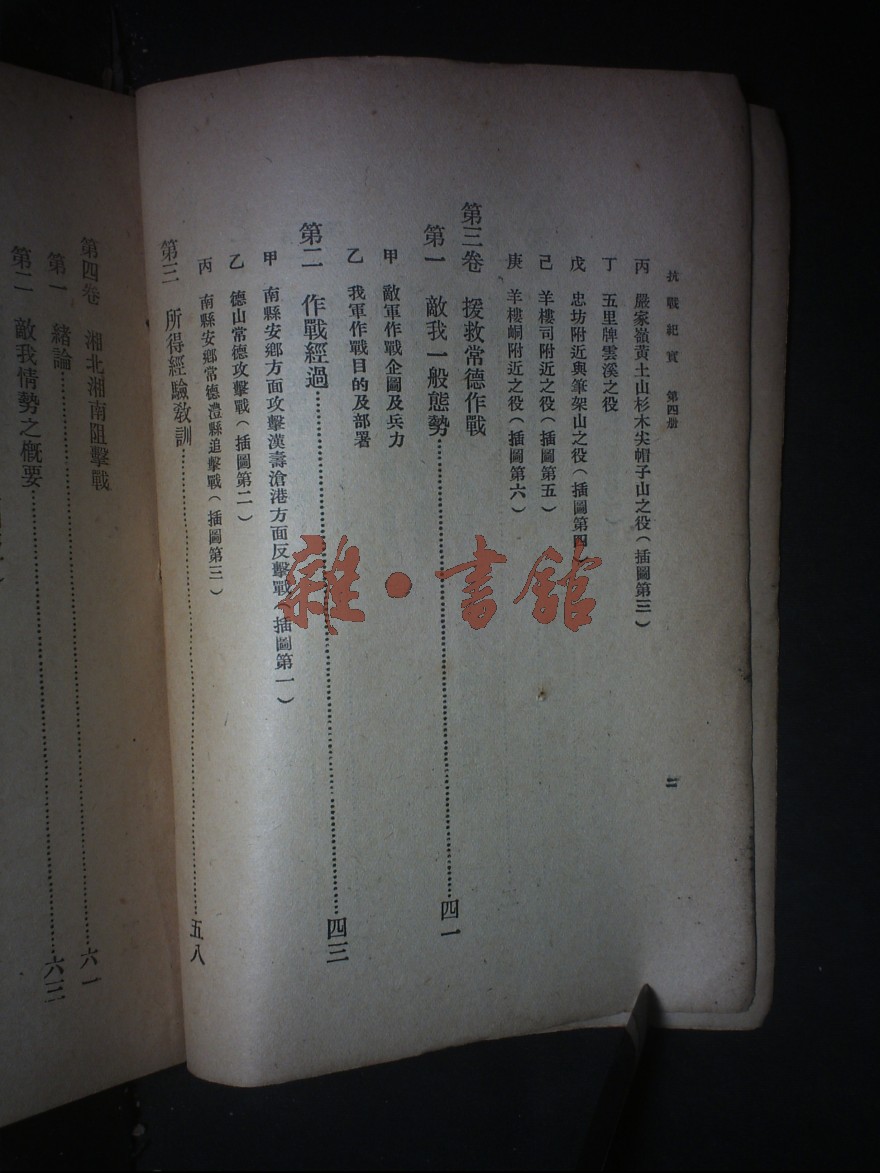 抗戰紀實 第四册
二
丙 嚴家嶺黃土山杉木尖帽子山之役(插圖第三)
丁 五里牌雲溪之役
戊 忠坊附近與筆架山之役(插圖第四
己 羊樓司附近之役(插圖第五)
庚 羊樓峒附近之役(插圖第六)
第三卷 援救常德作戰
第一 敵我一般態勢……四一
甲 敵軍作戰企圖及兵力
乙 我軍作戰目的及部署
第二 作戰經過……四三
甲 南縣安鄉方面攻擊漢壽滄港方面反擊戰(插圖第一)
乙 德山常德攻擊戰(插圖第二)
丙 南縣安鄉常德澧縣追擊戰(插圖第三)
第三 所得經驗敎訓……五八
第四卷 湘北湘南阻擊戰
第一 緒論……六一
第二 敵我情勢之概要……六三
雜·書館